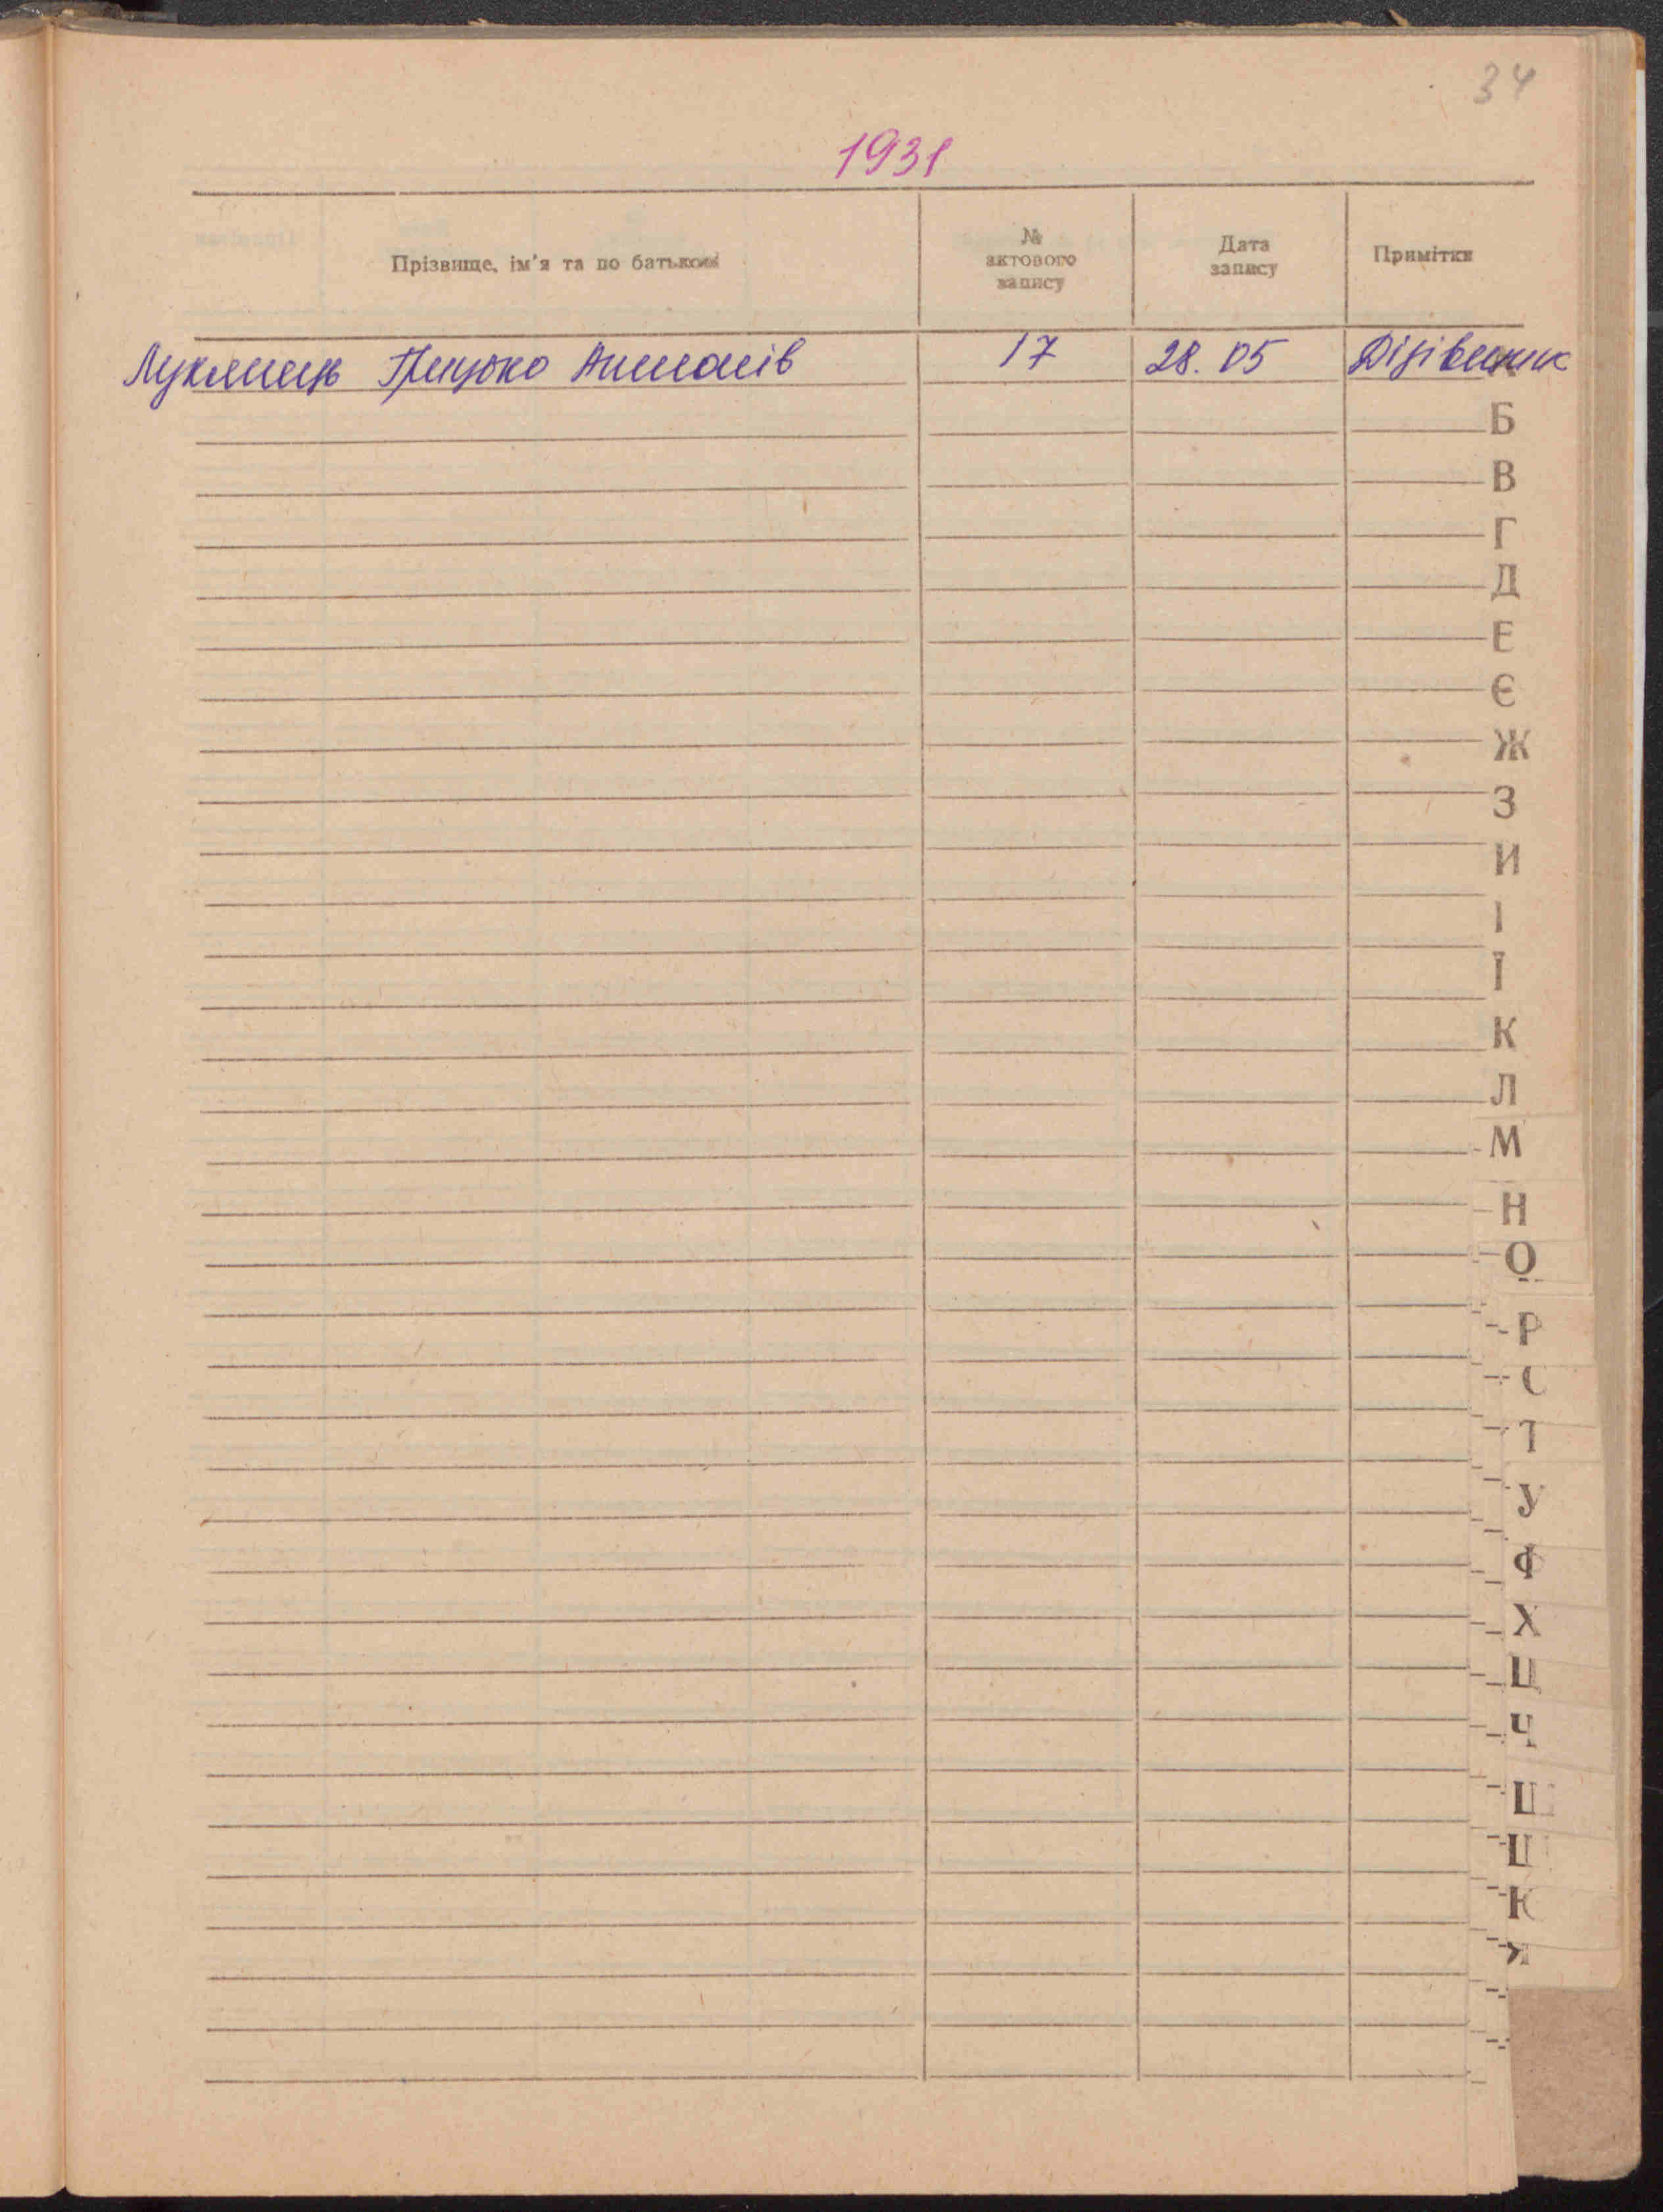 34
1931
Прізвище, ім'я та по батькові
№ актового запису
Дата запису
Примітки
Лукянець Грицько 17 28.05
Б
В
Г
Д
Е
Є
Ж
З
И
І
Ї
К
Л
М
Н
О
Р
С
Т
У
Ф
Х
Ц
Ч
Ш